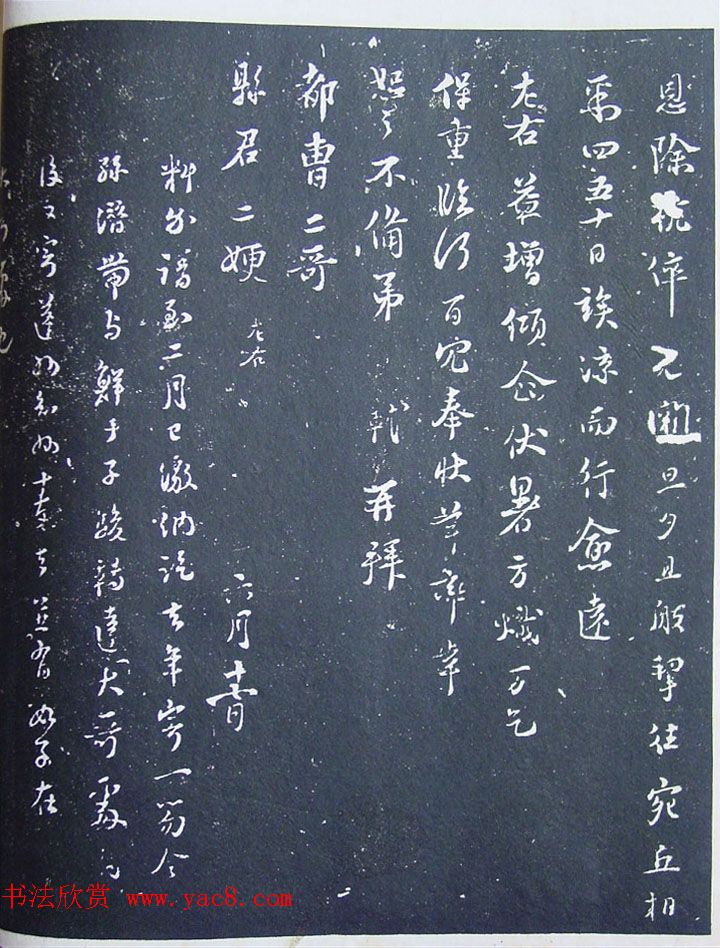 恩除杭倅闕旦夕且般挈往宛丘相
聚四五十日俟涼而行愈遠
左右益增傾企伏暑方熾万乞
保重臨行百冗奉狀草率幸
恕之不備弟 軾再拜
都曹二哥
縣君二嫂 左右 六月日
料至六月已繳納訖去年寄一笏令
孫潛帶与鮮于子駿轉達大哥處
後又寄蓬州知州子在
书法欣赏 www.yac8.com